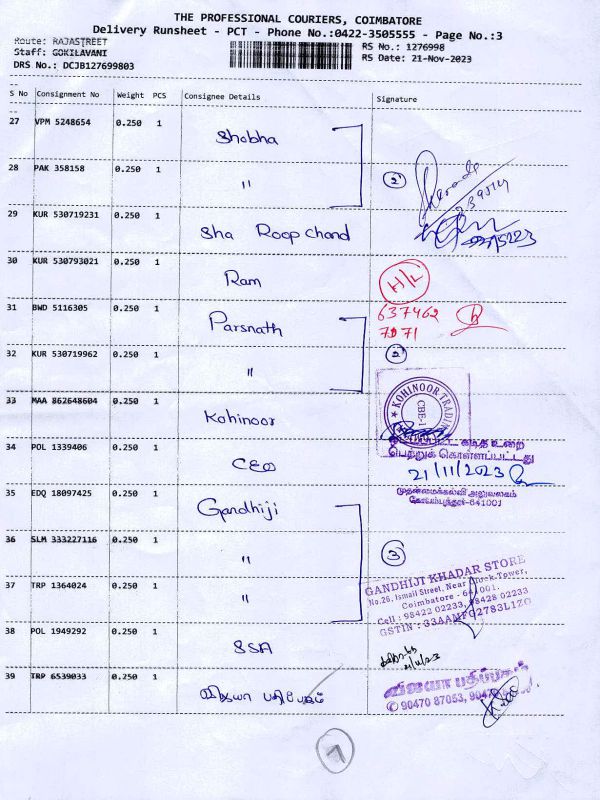 THE PROFESSIONAL COURIERS, COIMBATORE
Delivery Runsheet - PCT - Phone No.:0422-3505555 - Page No.:3
Route: RAJASTREET
Staff: GOKILAVANI
DRS No.: DCJB127699803
RS No.: 1276998
RS Date: 21-Nov-2023
S No Consignment No Weight PCS Consignee Details Signature
27 VPM 5248654 0.250 1 Shobha
28 PAK 358158 0.250 1 "
2
29 KUR 530719231 0.250 1 Sha Roop Chand
30 KUR 530793021 0.250 1 Ram
H/L
637462
7071
31 BWD 5116305 0.250 1 Parsnath
32 KUR 530719962 0.250 1 "
2
33 MAA 862648604 0.250 1 Kohinoor
KOHINOOR TRADING
CBE-1
34 POL 1339406 0.250 1 CEO
கடித உறை
பெற்றுக் கொள்ளப்பட்டது
21/11/2023
முதன்மைக்கல்வி அலுவலகம்
கோயம்புத்தூர்-641001
35 EDQ 18097425 0.250 1 Gandhiji
36 SLM 333227116 0.250 1 "
3
37 TRP 1364024 0.250 1 "
GANDHIJI KHADAR STORE
No.26, Ismail Street, Near Clock Tower,
Coimbatore - 641001.
Cell : 98422 02233, 98428 02233
GSTIN : 33AAMFG2783L1ZO
38 POL 1949292 0.250 1 SSA
21/11/23
39 TRP 6539033 0.250 1 விஜயா பதிப்பகம்
விஜயா பதிப்பகம்
90470 87053,
7